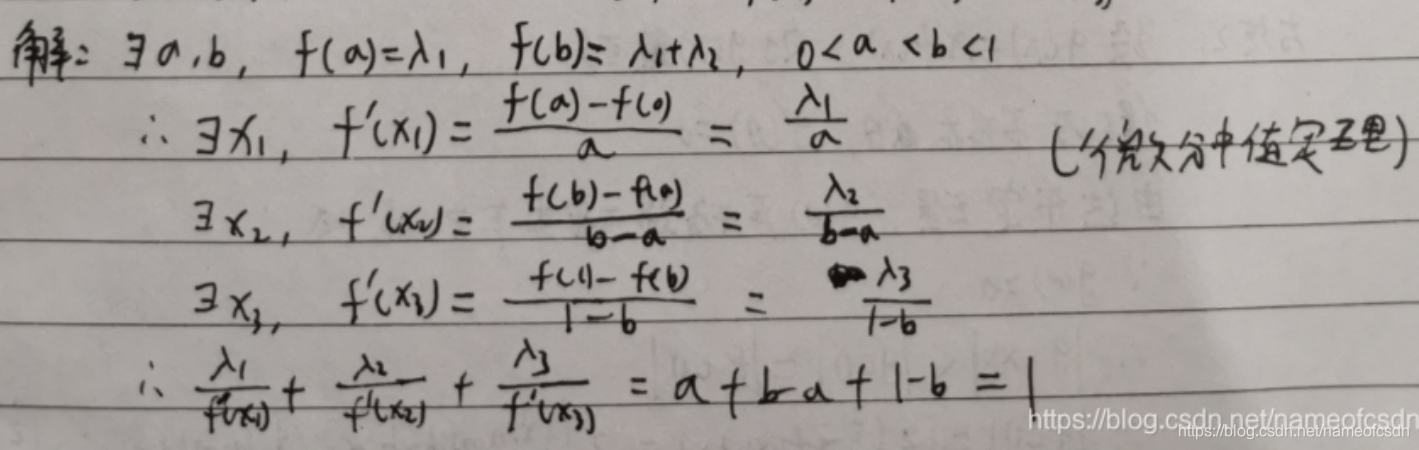 解: ∃a,b, f(a)=λ₁, f(b)=λ₁+λ₂, 0<a<b<1
∴ ∃x₁, f'(x₁) = (f(a)-f(0))/a = λ₁/a (微分中值定理)
∃x₂, f'(x₂) = (f(b)-f(a))/(b-a) = λ₂/(b-a)
∃x₃, f'(x₃) = (f(1)-f(b))/(1-b) = λ₃/(1-b)
∴ λ₁/f'(x₁) + λ₂/f'(x₂) + λ₃/f'(x₃) = a+b-a+1-b = 1
https://blog.csdn.net/nameofcsdn
https://blog.csdn.net/nameofcsdn